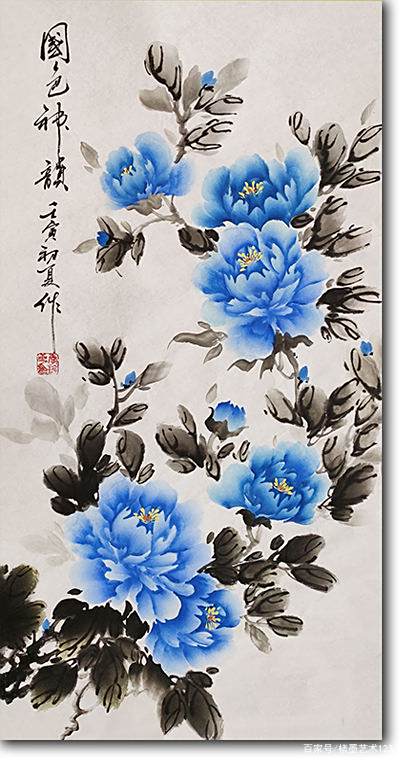 國色神韻
壬寅初夏作
百家号/楮墨艺术123